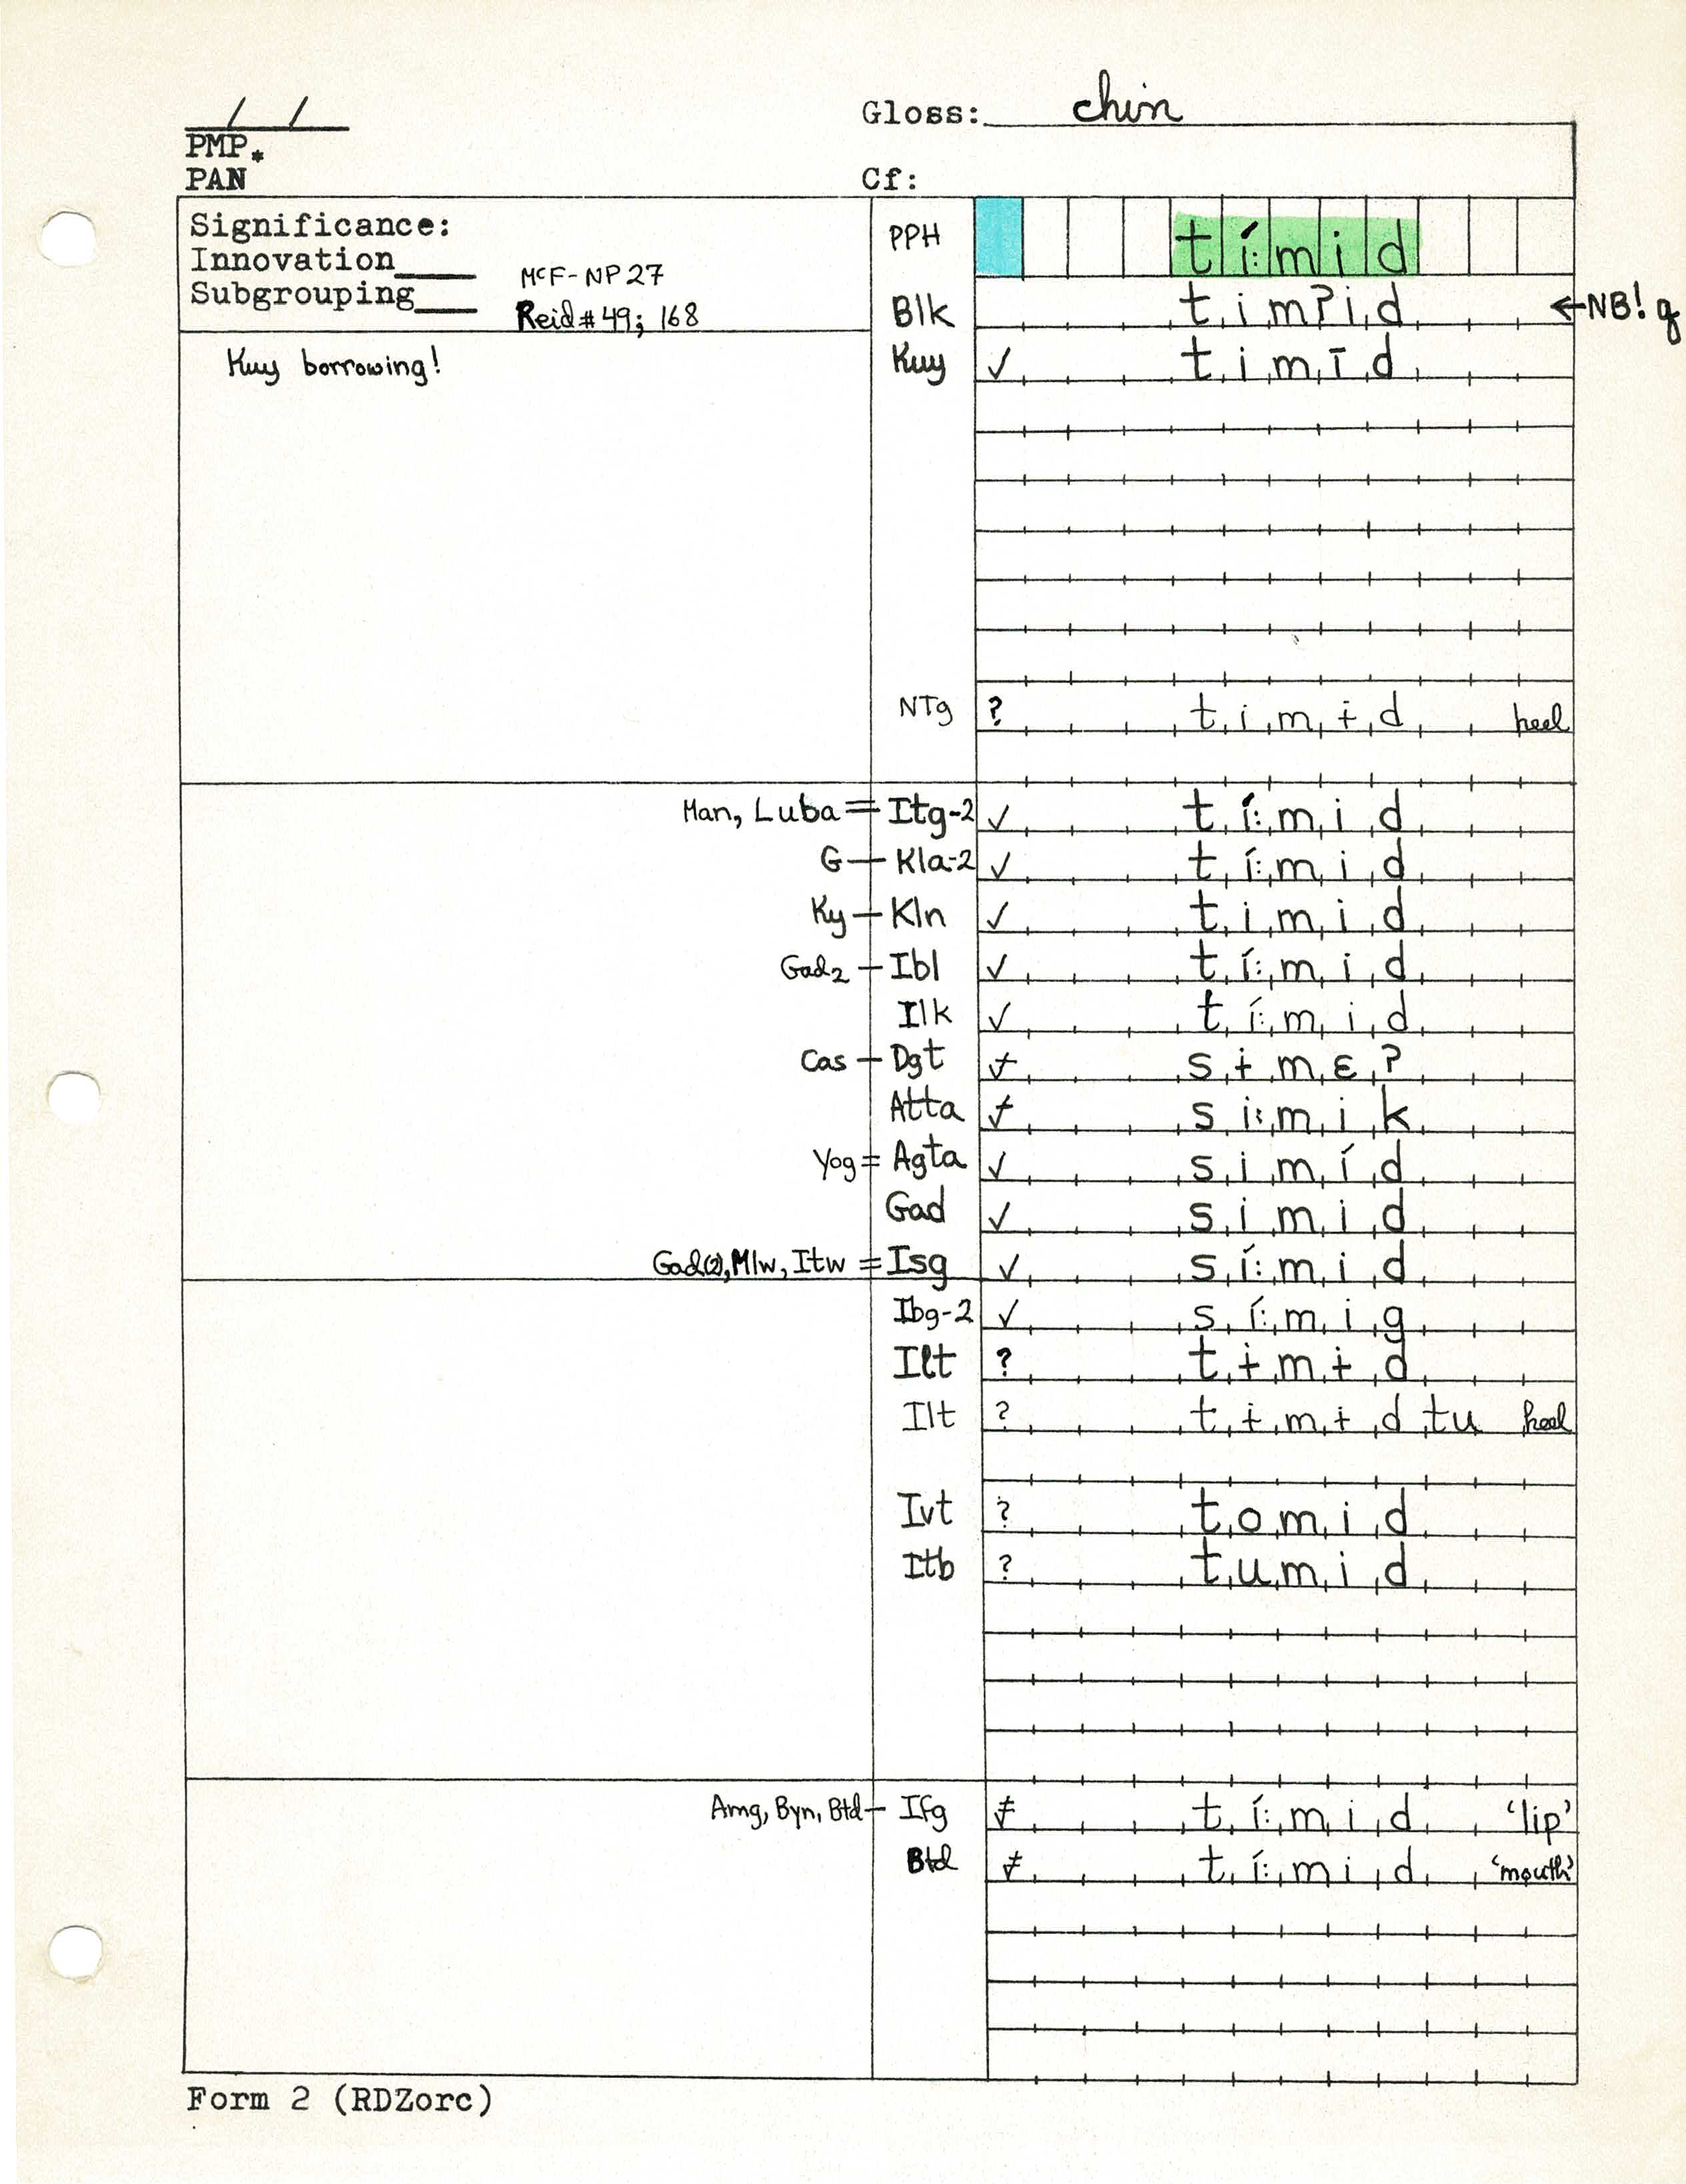 / /
Gloss: chin
PMP*
PAN
Cf:
Significance:
Innovation____ McF-NP27
Subgrouping____ Reid #49; 168
PPH tí:mid
Blk timʔid ←NB! q
Kuy borrowing!
Kuy ✓ timīd
NTg ? timɨd heel
Man, Luba = Itg-2 ✓ tí:mid
G — Kla-2 ✓ tí:mid
Ky — Kln ✓ timid
Gad2 — Ibl ✓ tí:mid
Ilk ✓ tí:mid
Cas — Dgt ⌿ sɨmɛʔ
Atta ⌿ si:mik
Yog = Agta ✓ simíd
Gad ✓ simid
Gad(2), Mlw, Itw = Isg ✓ sí:mid
Ibg-2 ✓ sí:mig
Ilt ? tɨmɨd
Ilt ? tɨmɨd tu heel
Ivt ? tomid
Itb ? tumid
Amg, Byn, Btd — Ifg ≠ tí:mid 'lip'
Btd ≠ tí:mid 'mouth'
Form 2 (RDZorc)